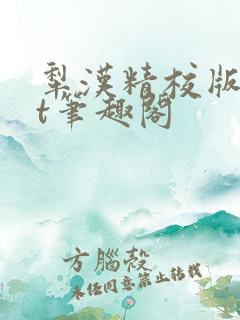 犁漢精校版
t笔趣閣
方腦殼
未经同意禁止转载